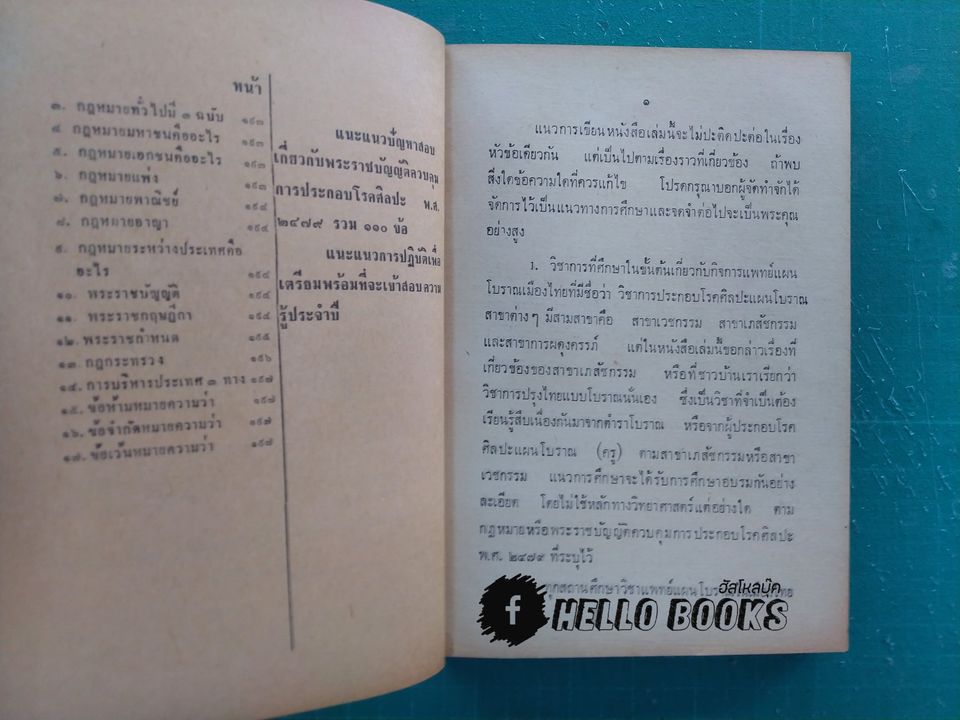 หน้า
๓. กฎหมายทั่วไปมี ๓ ฉบับ ๑๙๓
๔ กฎหมายมหาชนคืออะไร ๑๙๓
๕. กฎหมายเอกชนคืออะไร ๑๙๓
๖. กฎหมายแพ่ง ๑๙๓
๗. กฎหมายพาณิชย์ ๑๙๔
๘. กฎหมายอาญา ๑๙๔
๙. กฎหมายระหว่างประเทศคือ
อะไร ๑๙๔
๑๐. พระราชบัญญัติ ๑๙๔
๑๑. พระราชกฤษฎีกา ๑๙๔
๑๒. พระราชกำหนด ๑๙๕
๑๓. กฎกระทรวง ๑๙๖
๑๔. การบริหารประเทศ ๓ ทาง ๑๙๗
๑๕. ข้อห้ามหมายความว่า ๑๙๗
๑๖. ข้อจำกัดหมายความว่า ๑๙๗
๑๗. ข้อเว้นหมายความว่า ๑๙๗
แนะแนวปัญหาสอบ
เกี่ยวกับพระราชบัญญัติควบคุม
การประกอบโรคศิลปะ พ.ศ.
๒๔๗๙ รวม ๑๑๐ ข้อ
แนะแนวการปฏิบัติเพื่อ
เตรียมพร้อมที่จะเข้าสอบความ
รู้ประจำปี
๑
แนวการเขียนหนังสือเล่มนี้จะไม่ปะติดปะต่อในเรื่อง
หัวข้อเดียวกัน แต่เป็นไปตามเรื่องราวที่เกี่ยวข้อง ถ้าพบ
สิ่งใดข้อความใดที่ควรแก้ไข โปรดกรุณาบอกผู้จัดทำจักได้
จัดการไว้เป็นแนวทางการศึกษาและจดจำต่อไปจะเป็นพระคุณ
อย่างสูง
๑. วิชาการที่ศึกษาในขั้นต้นเกี่ยวกับกิจการแพทย์แผน
โบราณเมืองไทยที่มีชื่อว่า วิชาการประกอบโรคศิลปะแผนโบราณ
สาขาต่างๆ มีสามสาขาคือ สาขาเวชกรรม สาขาเภสัชกรรม
และสาขาการผดุงครรภ์ แต่ในหนังสือเล่มนี้ขอกล่าวเรื่องที่
เกี่ยวข้องของสาขาเภสัชกรรม หรือที่ชาวบ้านเราเรียกว่า
วิชาการปรุงไทยแบบโบราณนั่นเอง ซึ่งเป็นวิชาที่จำเป็นต้อง
เรียนรู้สืบเนื่องกันมาจากตำราโบราณ หรือจากผู้ประกอบโรค
ศิลปะแผนโบราณ (ครู) ตามสาขาเภสัชกรรมหรือสาขา
เวชกรรม แนวการศึกษาจะได้รับการศึกษาอบรมกันอย่าง
ละเอียด โดยไม่ใช้หลักทางวิทยาศาสตร์แต่อย่างใด ตาม
กฎหมายหรือพระราชบัญญัติควบคุมการประกอบโรคศิลปะ
พ.ศ. ๒๔๗๙ ที่ระบุไว้
ทุกสถานศึกษาวิชาแพทย์แผนโบราณ
ฮัสโหลบุ๊ค
f HELLO BOOKS